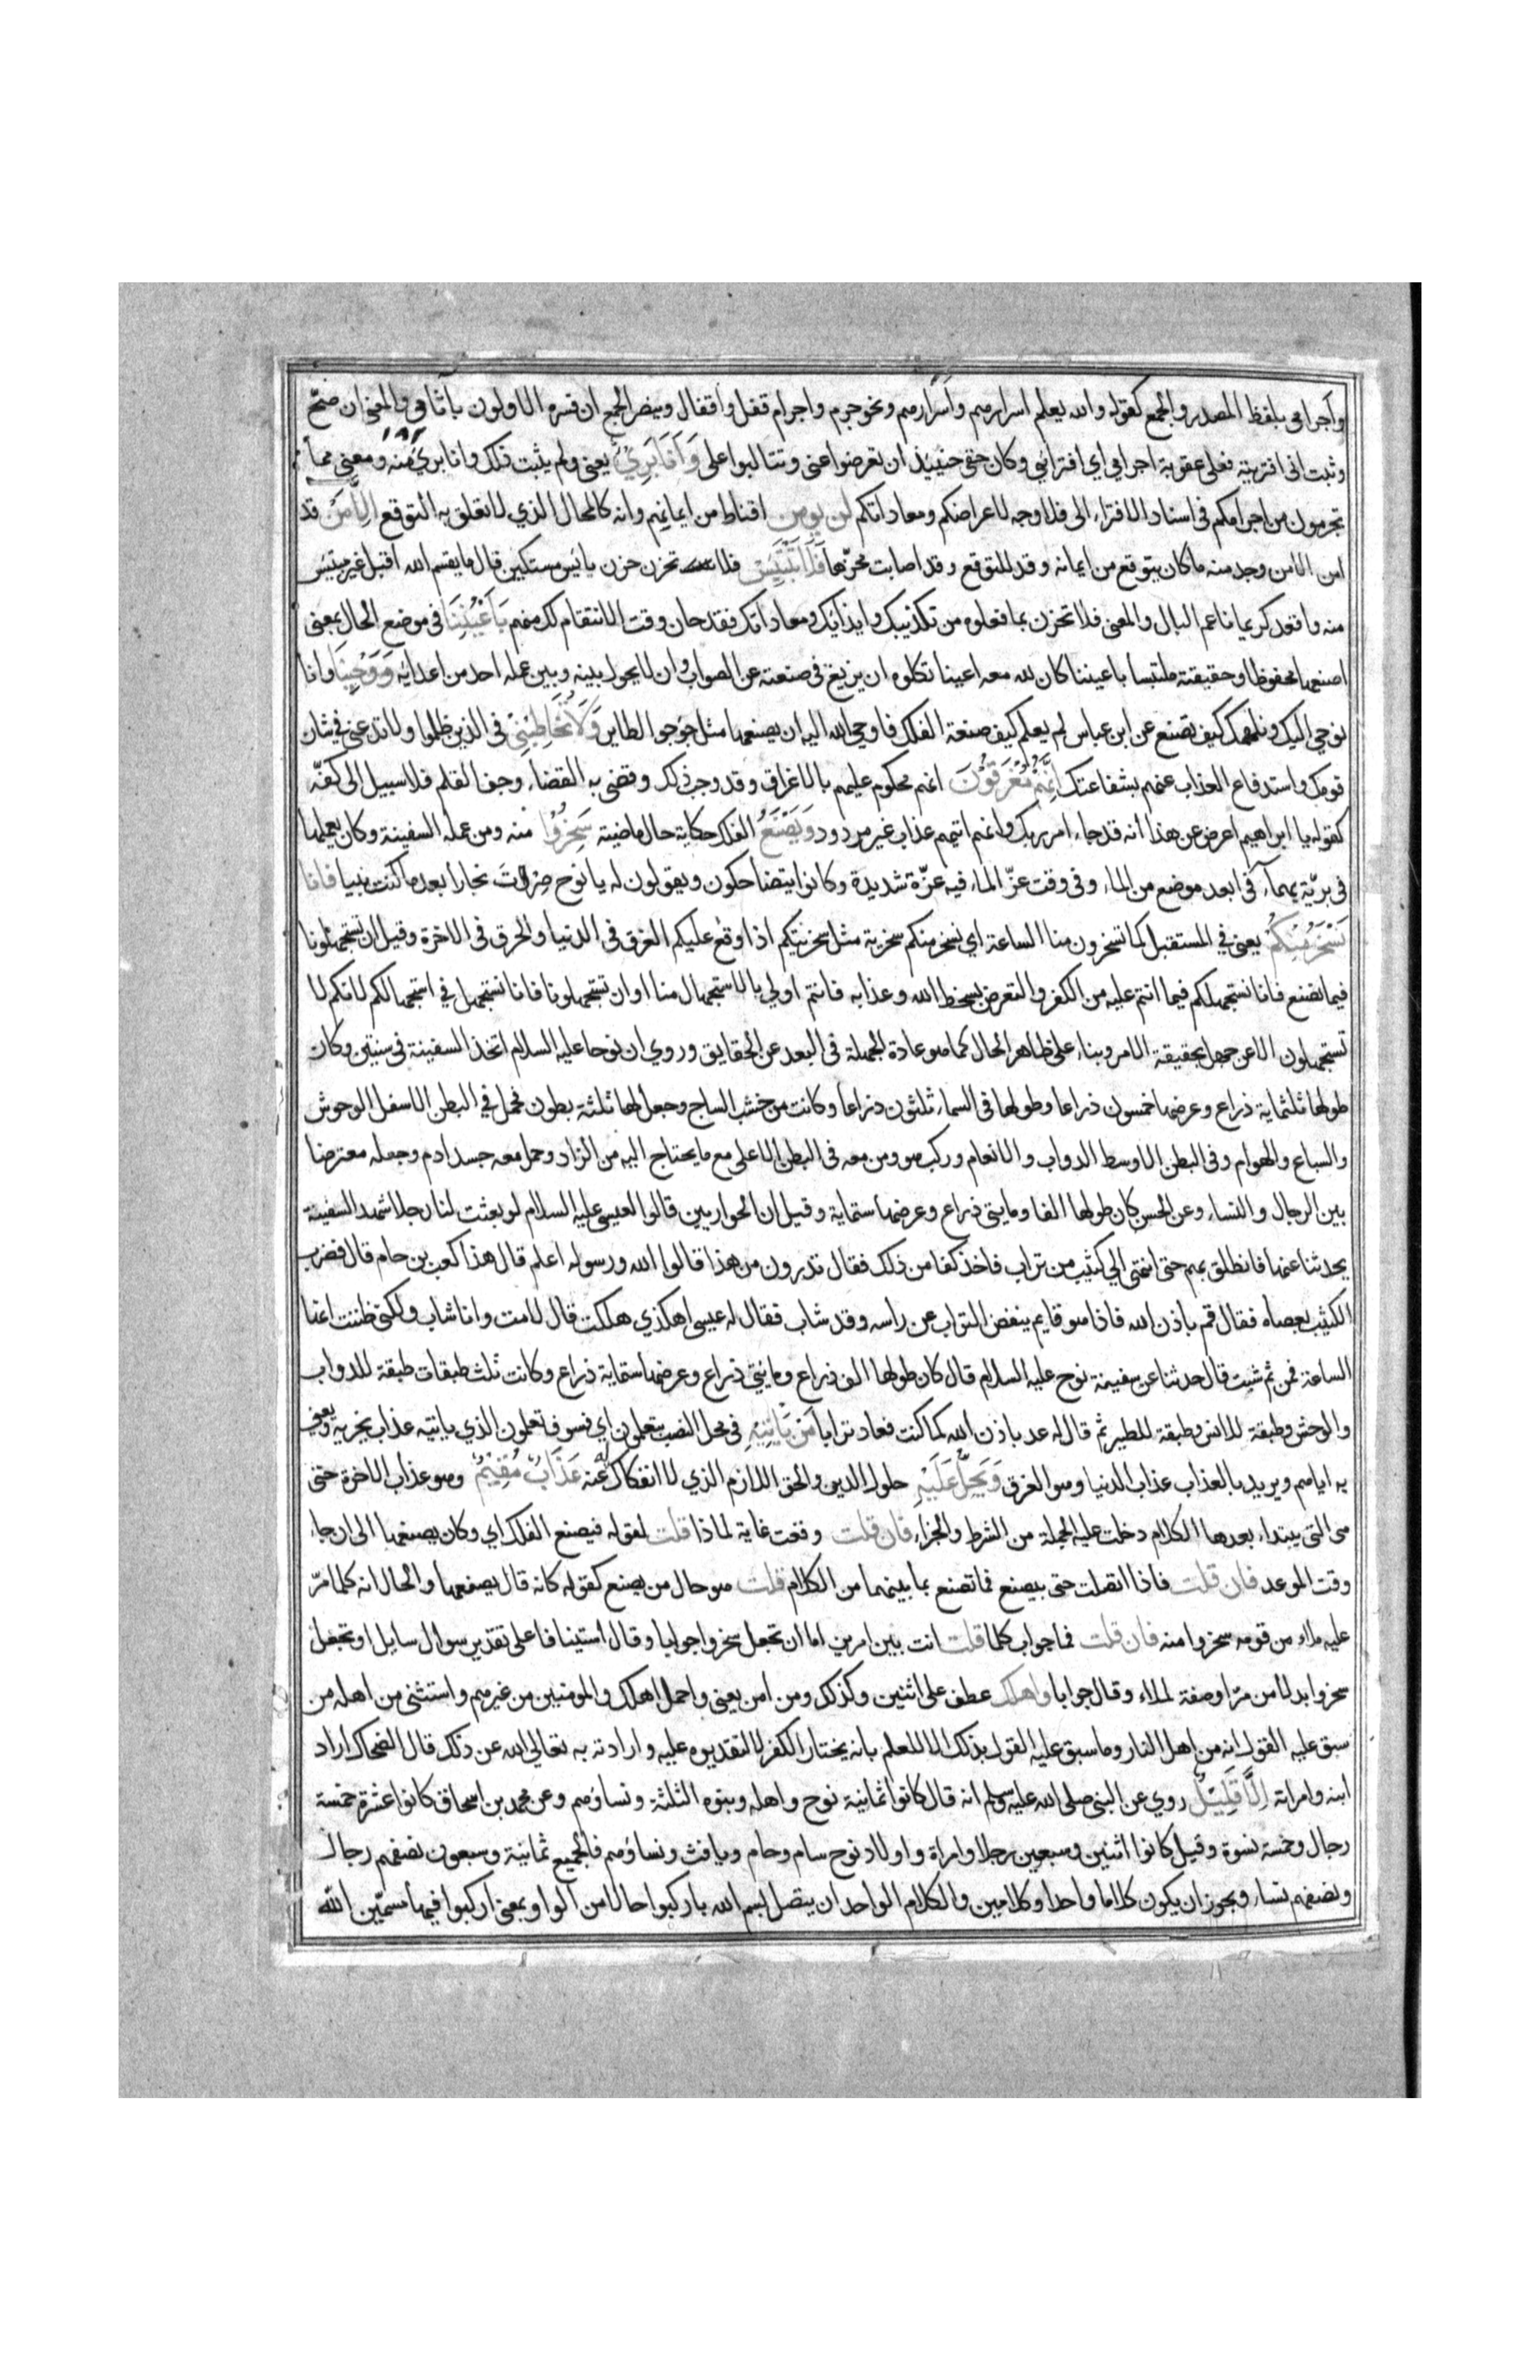 واجرامي بلفظ المصدر والجمع كقوله والله يعلم اسرارهم وأسرارهم ونحو جرم واجرام قفل واقفال وينصر الجمع ان فسره الاولون باثامي والمعنى ان صحّ
وثبت انى افتريته فعلى عقوبة اجرامي اي افترائي وكان حقي حينيذ ان تعرضوا عنى وتتالبوا على وَأَنَا بَرِيٌ يعني ولم يثبت ذلك وانا بريٌ منه ومعنى مما
تجرمون من اجرامكم فى اسناد الافتراء الى فلا وجه لاعراضكم ومعاداتكم لن يومن اقناط من ايمانهم وانه كالمحال الذي لا تعلق به التوقع إلا مَن قد
امن الا من وجد منه ما كان يتوقع من ايمانه وقد للتوقع وقد اصابت محزّها فَلَا تَبْتَئِسْ فلا تحزن حزن يايس مستكين قال ما يقسم الله اقبل غير مبتئس
منه واقعد كريما ناعم البال والمعنى فلا تحزن بما فعلوه من تكذيبك وايذائك ومعاداتك فقد حان وقت الانتقام لك منهم بِأَعْيُنِنَا في موضع الحال بمعنى
اصنعها محفوظا وحقيقته ملتبسا باعيننا كان لله معه اعينا تكلوه ان يزيغ فى صنعته عن الصواب وان لا يحول بينه وبين عمله احد من اعدائه وَوَحْيِنَا وانا
نوحي اليك ونلهمك كيف تصنع عن ابن عباس لم يعلم كيف صنعة الفلك فاوحى الله اليه ان يصنعها مثل جؤجو الطاير وَلَا تُخَاطِبْنِي فى الذين ظلموا ولا تدعنى في شان
قومك واستدفاع العذاب عنهم بشفاعتك إِنَّهُمْ مُغْرَقُونَ انهم محكوم عليهم بالاغراق وقد وجب ذلك وقضى به القضاء وجف القلم فلا سبيل الى كفّه
كقوله يا ابراهيم اعرض عن هذا انه قد جاء امر ربك وانهم اتيهم عذاب غير مردود وَيَصْنَعُ الفلك حكاية حال ماضية سَخِرُوا منه ومن عمله السفينة وكان يعملها
في بريّة بهماء في ابعد موضع من الماء وفى وقت عزّ الماء فيه عزّة شديدة وكانوا يتضاحكون ويقولون له يا نوح صرت نجارا بعد ما كنت نبيا فانا
نَسْخَرُ مِنْكُمْ يعنى في المستقبل كما تسخرون منا الساعة اي نسخر منكم سخرية مثل سخريتكم اذا وقع عليكم الغرق فى الدنيا والحرق فى الاخرة وقيل ان تستجهلونا
فيما نصنع فانا نستجهلكم فيما انتم عليه من الكفر والتعرض بسخط الله وعذابه فانتم اولى بالاستجهال منا او ان تستجهلونا فانا نستجهلكم في استجهالكم لانكم لا
تستجهلون الا عن جهل بحقيقة الامر وبناء على ظاهر الحال كما هو عادة الجهلة فى البعد عن الحقايق وروي ان نوحا عليه السلام اتخذ السفينة فى سنتين وكان
طولها ثلثماية ذراع وعرضها خمسون ذراعا وطولها فى السماء ثلثون ذراعا وكانت من خشب الساج وجعل لها ثلثة بطون فحمل في البطن الاسفل الوحوش
والسباع والهوام وفى البطن الاوسط الدواب والانعام وركب هو ومن معه فى البطن الاعلى مع ما يحتاج اليه من الزاد وحمل معه جسد ادم وجعله معترضا
بين الرجال والنساء وعن الحسن كان طولها الفا ومايتى ذراع وعرضها ستماية وقيل ان الحواريين قالوا لعيسى عليه السلام لو بعثت لنا رجلا شهد السفينة
يحدثنا عنها فانطلق بهم حتى انتهى الى كثيب من تراب فاخذ كفا من ذلك فقال تدرون من هذا قالوا الله ورسوله اعلم قال هذا كعب بن حام قال فضرب
الكثيب بعصاه فقال قم باذن الله فاذا هو قايم ينفض التراب عن راسه وقد شاب فقال له عيسى اهكذي هلكت قال لا مت وانا شاب ولكنى ظننت انها
الساعة فمن ثم شبت قال حدثنا عن سفينة نوح عليه السلام قال كان طولها الف ذراع ومايتى ذراع وعرضها ستماية ذراع وكانت ثلث طبقات طبقة للدواب
والوحش وطبقة للانس وطبقة للطير ثم قال له عد باذن الله كما كنت فعاد ترابا مَنْ يَأْتِيهِ فى محل النصب بتعلمون اي فسوف تعلمون الذي ياتيه عذاب يخزيه ويعنى
به اياهم ويريد بالعذاب عذاب الدنيا وهو الغرق وَيَحِلُّ عَلَيْهِ حلول الدين والحق اللازم الذي لا انفكاك له عنه عَذَابٌ مُقِيمٌ وهو عذاب الاخرة حتى
هى التى يبتداء بعدها الكلام دخلت عليه الجملة من الشرط والجزاء فان قلت وقعت غاية لماذا قلت لقوله فيصنع الفلك اي وكان يصنعها الى ان جاء
وقت الموعد فان قلت فاذا اتصلت حتى بيصنع فما تصنع بما بينهما من الكلام قلت هو حال من يصنع كقوله كانه قال يصنعها والحال انه كلما مرّ
عليه ملاء من قومه سخروا منه فان قلت فما جواب كلما قلت انت بين امرين اما ان تجعل سخروا جوابا وقال استينافا على تقدير سوال سايل او تجعل
سخروا بدلا من مرّ او صفة لملاء وقال جوابا واهلك عطف على اثنين وكذلك ومن امن يعنى واحمل اهلك والمومنين من غيرهم واستثنى من اهله من
سبق عليه القول انه من اهل النار وما سبق عليه القول بذلك الا للعلم بانه يختار الكفر لا لتقديره عليه وارادته به تعالى الله عن ذلك قال الضحاك اراد
ابنه وامراته إِلَّا قَلِيلٌ روي عن النبى صلى الله عليه وسلم انه قال كانوا ثمانية نوح واهله وبنوه الثلثة ونساؤهم وعن محمد بن اسحاق كانوا عشرة خمسة
رجال وخمسة نسوة وقيل كانوا اثنين وسبعين رجلا وامراة واولاد نوح سام وحام ويافث ونساؤهم فالجميع ثمانية وسبعون نصفهم رجال
ونصفهم نساء ويجوز ان يكون كلاما واحدا وكلامين والكلام الواحد ان يتصل بسم الله باركبوا حالا من الواو بمعنى اركبوا فيها مسمّين الله